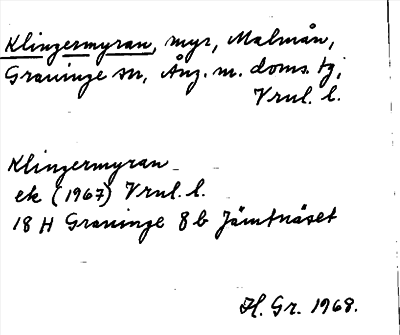 Klingermyran, myr, Malmån,
Graninge sn, Ång. m. doms. tg,
Vrnl. l.
Klingermyran
ek (1967) Vrnl. l.
18 H Graninge 8 b Jämtnäset
H. Gr. 1968.